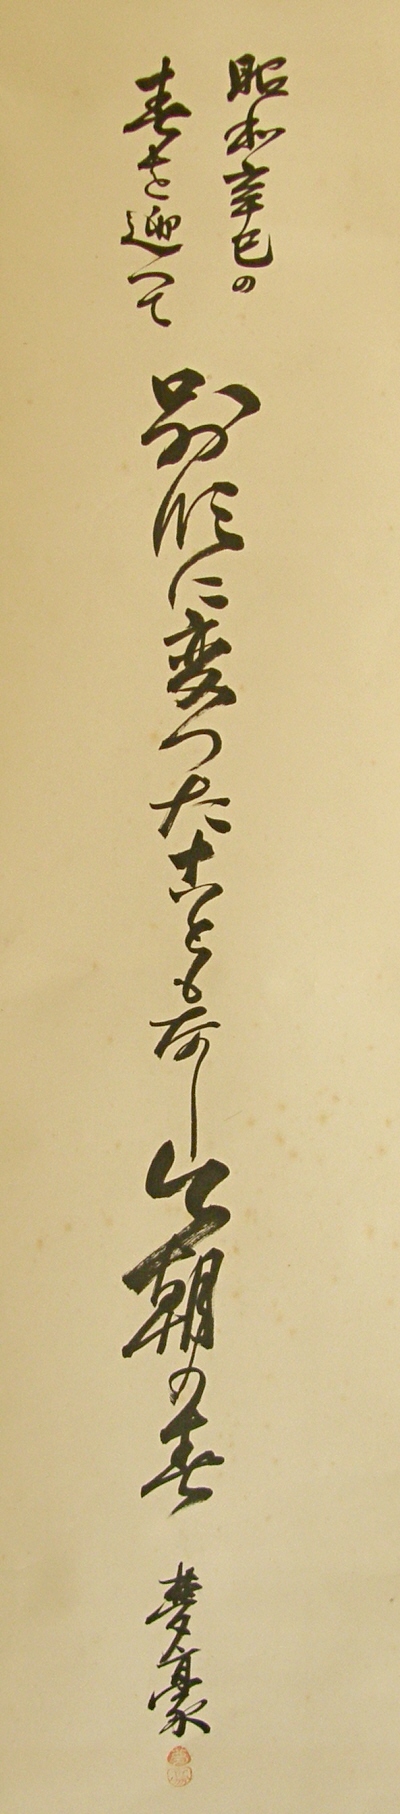 昭和辛巳の
春を迎へて
別段に変つたこともなし今朝の春
夢豪